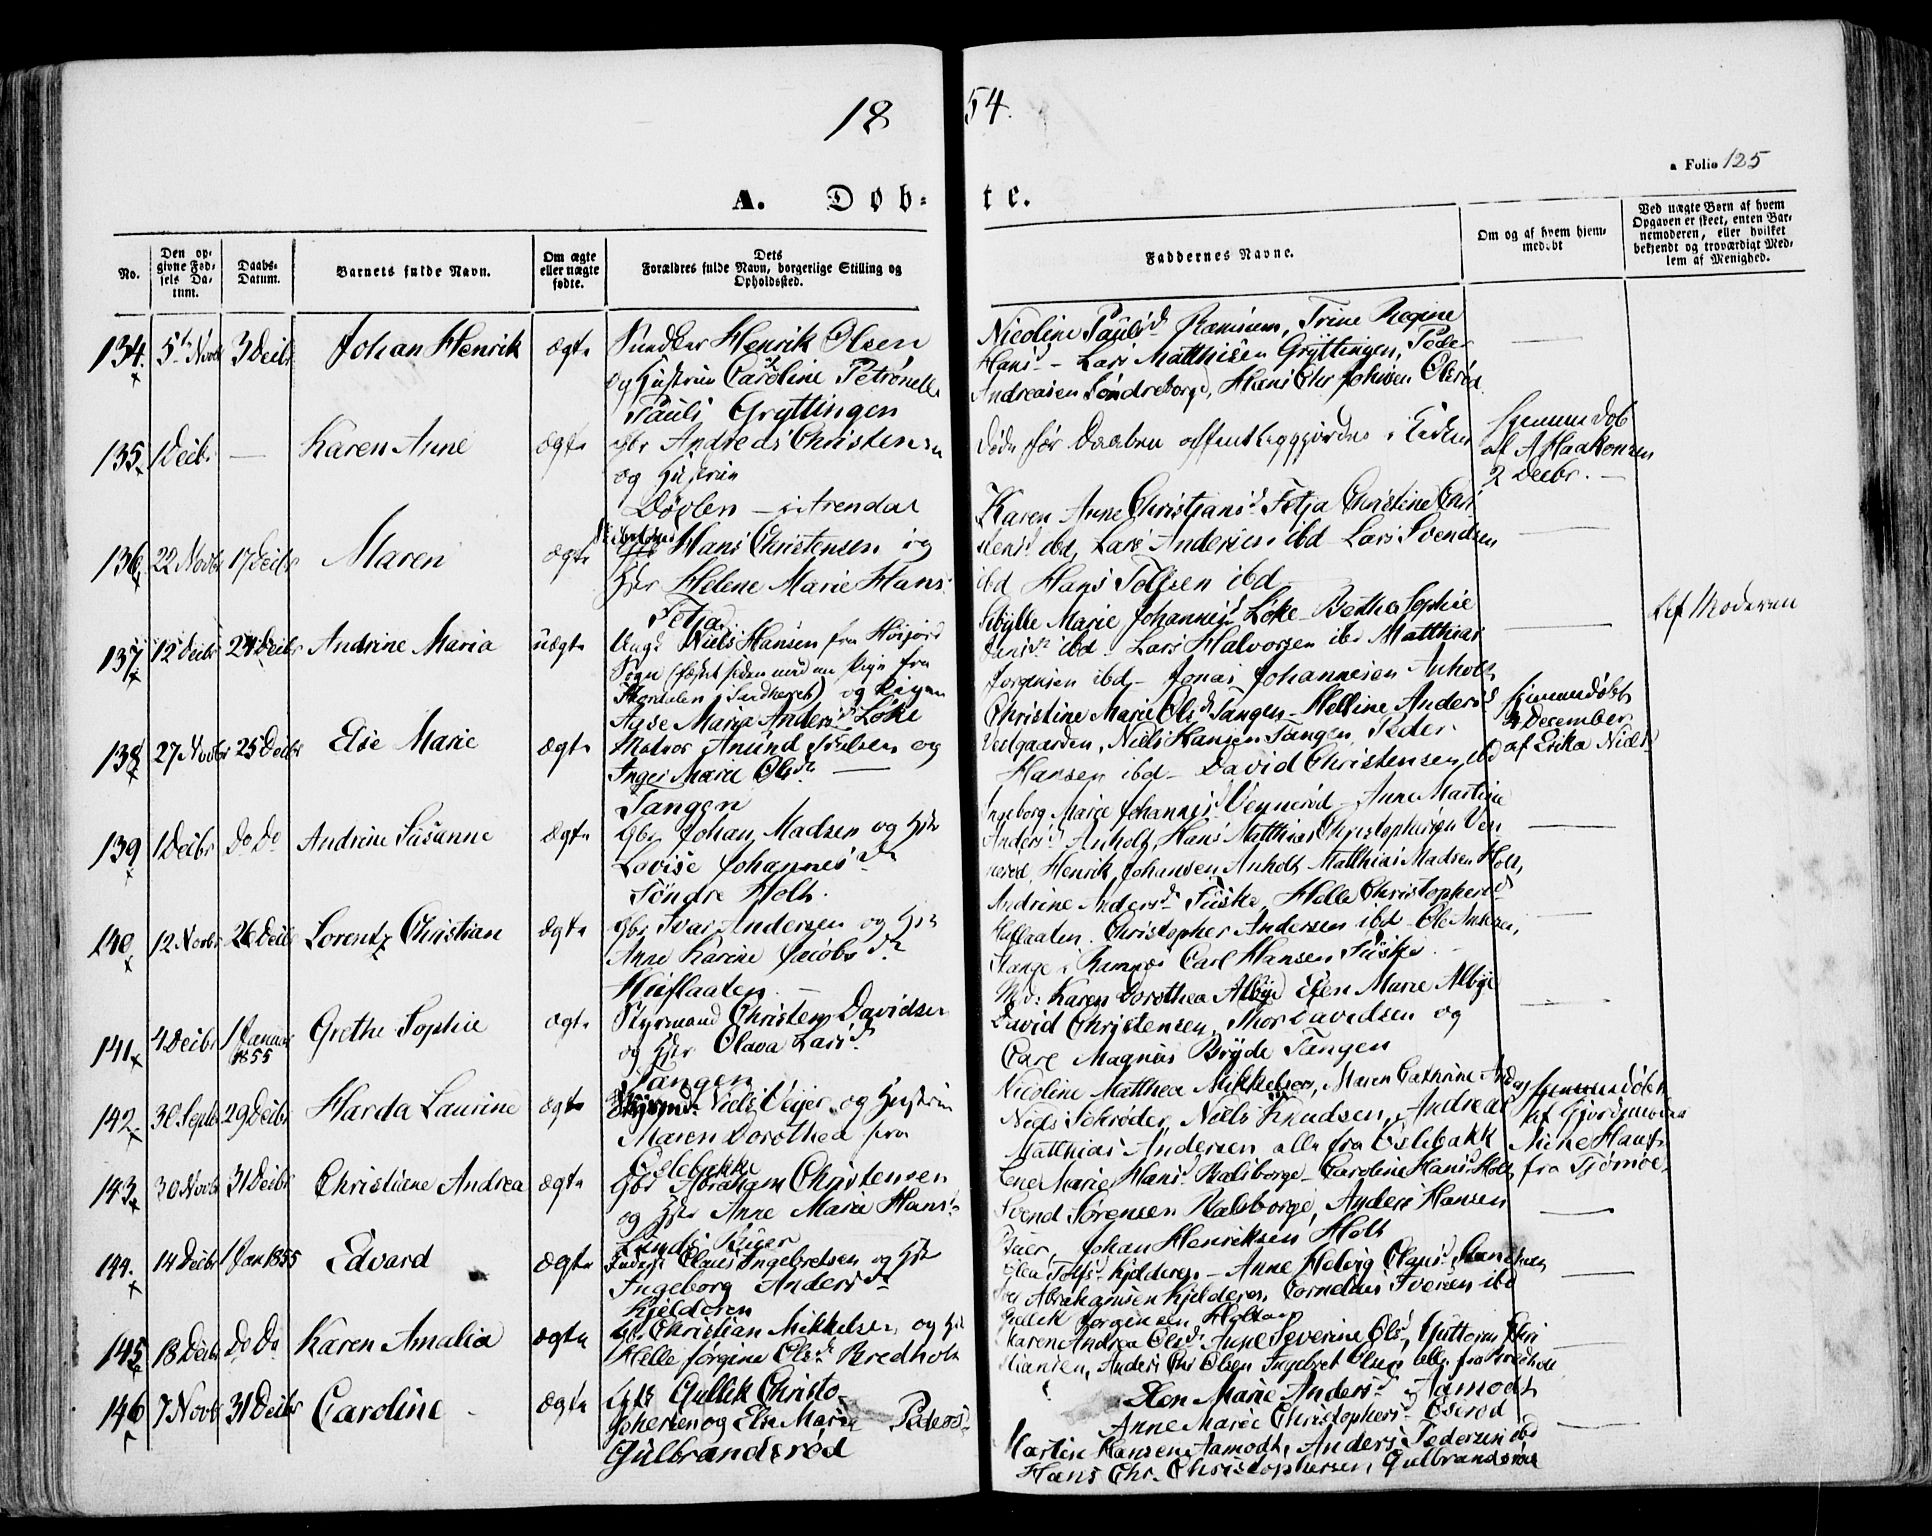 18 54.
a Folio 125
A. Døb- te.
No.
Den opgivne Fødsels Datum.
Daabs-Datum.
Barnets fulde Navn.
Om ægte eller uægte fødte.
Dets Forældres fulde Navn, borgerlige Stilling og Opholdssted.
Faddernes Navne.
Om og af hvem hjemmedøbt
Ved uægte Børn af hvem Opgaven er skeet, enten Barnemoderen, eller hvilket bekjendt og troværdigt Medlem af Menighed.
134. 5te Novb 3 Decbr Johan Henrik ægte Henrik Olsen
og Hustru Caroline Petronelle
Pauls Gryttingen
Nicoline Paulsd Ramsum, Trine Regine
Hansd - Lars Matthisen Gryttingen, Peder
Andreasen Søndre Borge, Hans Chr Johnsen Olsrød
135. 1 Decbr. — Karen Anne ægte Gbr Andreas Christensen
og Hustru
Døvlen
Døde før Daaben offentliggjordes i Kirken
Hjemmedøb
af A Haakonsen
2 Decbr. —
136. 22 Novbr 17 Decbr Maren ægte Hans Christensen og
Hstr Helene Marie Hans
Fetja
Karen Anne Christiansd Fetja Christine Chri
stensd ibd, Lars Andersen ibd Lars Svendsen
ibd Hans Tolfsen ibd
137. 12 Decbr 24 Decbr Andrine Maria uægte Ungk Niels Hansen fra
Sogn og Pigen
Anne Marie Andersd Løke
Sibylle Marie Johannesd Løke Bertha Sophie
ibd - Lars Halvorsen ibd Matthias
Jørgensen ibd - Jonas Johannesen Anholt
Af Moderen
138. 27 Novbr 25 Decbr Else Marie ægte Matros Anund og
Inger Marie Olsdr —
Tangen
Christine Marie Olsd Tangen - Helline Andersd
Vestgaarden, Niels Hansen Tangen, Peder
Hansen ibd - David Christensen ibd
Hjemmedøbt
4 December
af Erika Nielsd
139. 1 Decbr Do Do Andrine Susanne ægte Gbr Johan Madsen og Hstr
Lovise Johannesdr
Søndre Holt.
Ingeborg Marie Johannesd Vennerød - Anne Martine
Andersd Anholt, Hans Matthias Christophersen Ven
nerød, Henrik Johansen Anholt Matthias Madsen Holt,
140. 12 Novbr 26 Decbr Lorentz Christian ægte Gbr Ivar Andersen og Hstr
Anne Karine Jacobsdr
Huflaaten. —
Andrine Andersd Fuske, Helle Christophersd
Huflaaten. Christopher Andersen ibd - Ole Andersen,
Stange i Ramnes Carl Hansen Fuske.
141. 4 Decbr 1 Januar 1855 Grethe Sophie ægte Styrmand Christen Davidsen
og Hstr Olava Larsd
Tangen
Md: Karen Dorothea Albye Elen Marie Albye
David Christensen, Thor Davidsen og
Carl Magnus Bryde Tangen
142. 30 Septbr 29 Decbr Harda Laurine ægte Styrmd: Niels Veijer og Hustru
Maren Dorothea fra
Eslebakke
Nicoline Matthea Mikkelsen, Maren Cathrine
Niels Schrøder, Niels Knudsen, Andreas
Matthias Andersen alle fra Eslebakk
Hjemmedøbt
af Gjordemoder
Mine Hans
fra Tjømøe.
143. 30 Novb 31 Decbr Christiane Andrea ægte Gbr Abraham Christensen
og Hstr Anne Marie Hansd
Lunds Buer
Lene Marie Hansd Ralsborge - Caroline Hansd Holt
Svend Sørensen Ralsborge, Anders Hansen
Buer, Johan Henriksen Holt
144. 14 Decbr 1 Jan 1855 Edvard ægte Inders: Claus Ingebretsen og Hstr
Ingeborg Andersdr
Kjelderen
Olea Tolfsd Kjelderen - Anne Helvig Clausd
Abrahamsen Kjelderen, Cornelius Iversen ibd
Gullik Jørgensen Holtan
145. 18 Decbr Do Do Karen Amalia ægte Gbr Christian Mikkelsen og Hstr
Helle Jørgine Olsd Bredholt
Maren Andrea Olsd Anne Severine Olsd, Guttorm Chri
stiansen, Anders Chr Olsen Ingebret Olsen alle fra Bredholt
146 7 Novb 31 Decbr Caroline ægte Gullik Christo-
phersen og Else Marie Pedersd
Gulbrandsrød
Elen Marie Andersd Aamodt
Anne Marie Christophersd Eserød
Martin Hansen Aamodt, Anders Pedersen ibd
Hans Chr. Christophersen, Gulbrandsrød